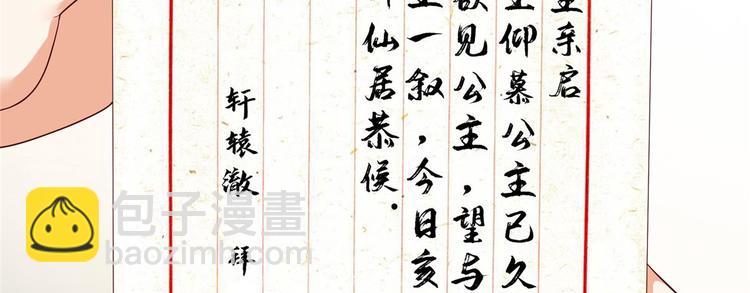 主亲启
仰慕公主已久
欲见公主,望与
一叙,今日亥
仙居恭候.
轩辕澈 拜
包子漫畫
baozimh.com